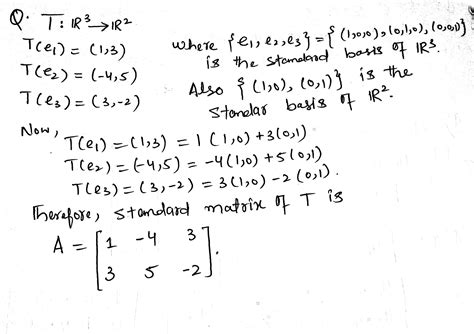 Q. T: ℝ³→ℝ²
T(e₁) = (1,3) where {e₁, e₂, e₃} = {(1,0,0), (0,1,0), (0,0,1)}
is the standard basis of ℝ³.
T(e₂) = (-4,5) Also {(1,0), (0,1)} is the
T(e₃) = (3,-2) standar basis of ℝ².
Now,
T(e₁) = (1,3) = 1(1,0) + 3(0,1)
T(e₂) = (-4,5) = -4(1,0) + 5(0,1)
T(e₃) = (3,-2) = 3(1,0) - 2(0,1).
Therefore, standard matrix of T is
A = [1 -4 3
3 5 -2].